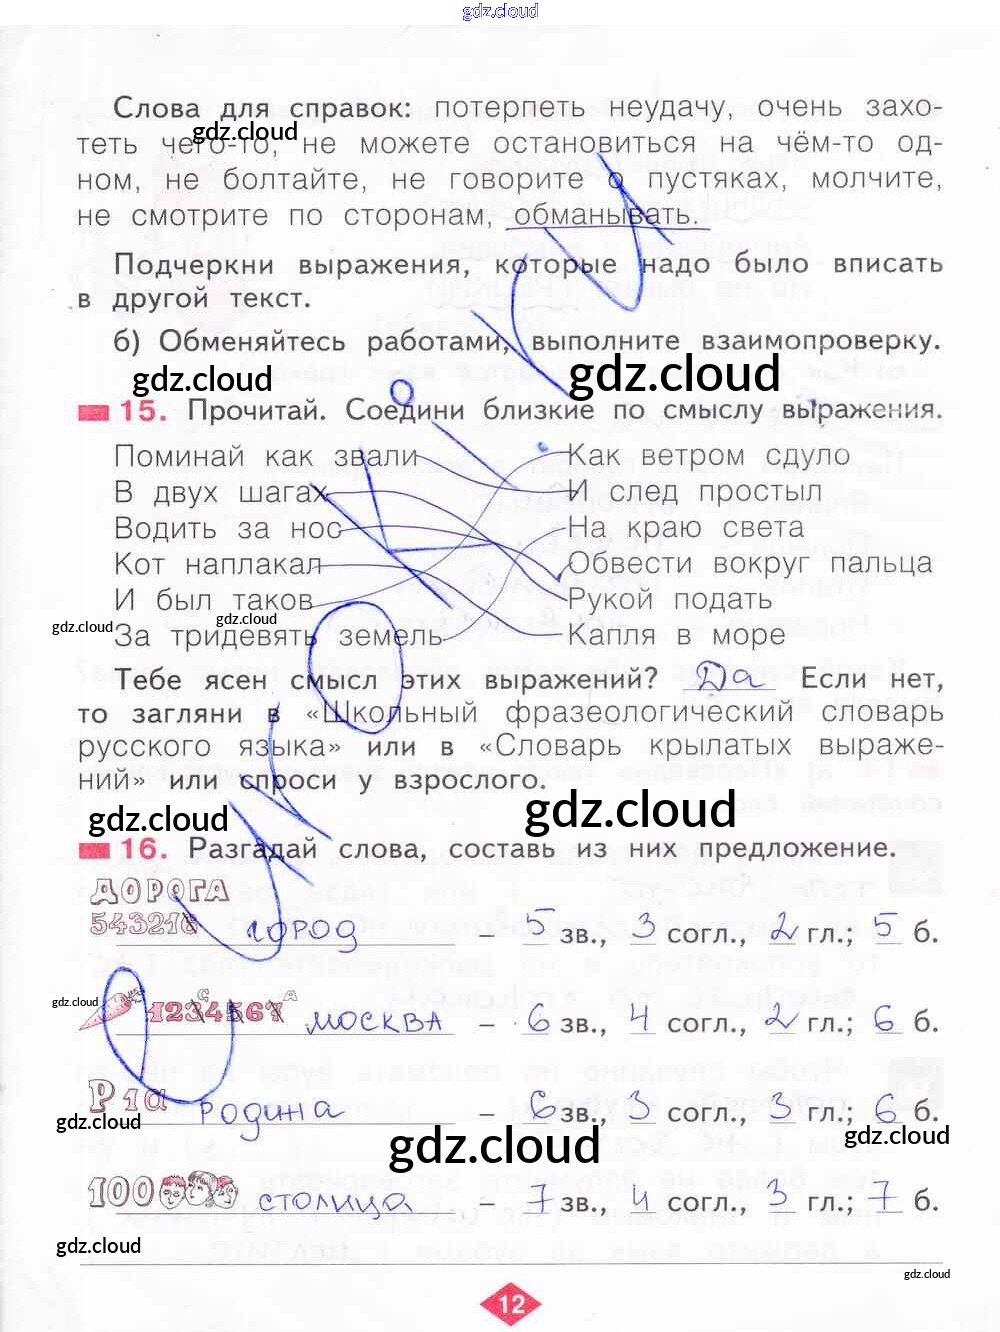 gdz.cloud
Слова для справок: потерпеть неудачу, очень захо-
gdz.cloud
теть чего-то, не можете остановиться на чём-то од-
ном, не болтайте, не говорите о пустяках, молчите,
не смотрите по сторонам, обманывать.
Подчеркни выражения, которые надо было вписать
в другой текст.
б) Обменяйтесь работами, выполните взаимопроверку.
gdz.cloud gdz.cloud
15. Прочитай. Соедини близкие по смыслу выражения.
Поминай как звали Как ветром сдуло
В двух шагах И след простыл
Водить за нос На краю света
Кот наплакал Обвести вокруг пальца
И был таков Рукой подать
gdz.cloud gdz.cloud
За тридевять земель Капля в море
Тебе ясен смысл этих выражений? Да Если нет,
то загляни в «Школьный фразеологический словарь
русского языка» или в «Словарь крылатых выраже-
ний» или спроси у взрослого.
gdz.cloud gdz.cloud
16. Разгадай слова, составь из них предложение.
ДОРОГА
543216 город – 5 зв., 3 согл., 2 гл.; 5 б.
gdz.cloud gdz.cloud
1234567 С А москва – 6 зв., 4 согл., 2 гл.; 6 б.
Р1а родина – 6 зв., 3 согл., 3 гл.; 6 б.
gdz.cloud gdz.cloud gdz.cloud
100 столица – 7 зв., 4 согл., 3 гл.; 7 б.
gdz.cloud gdz.cloud
12